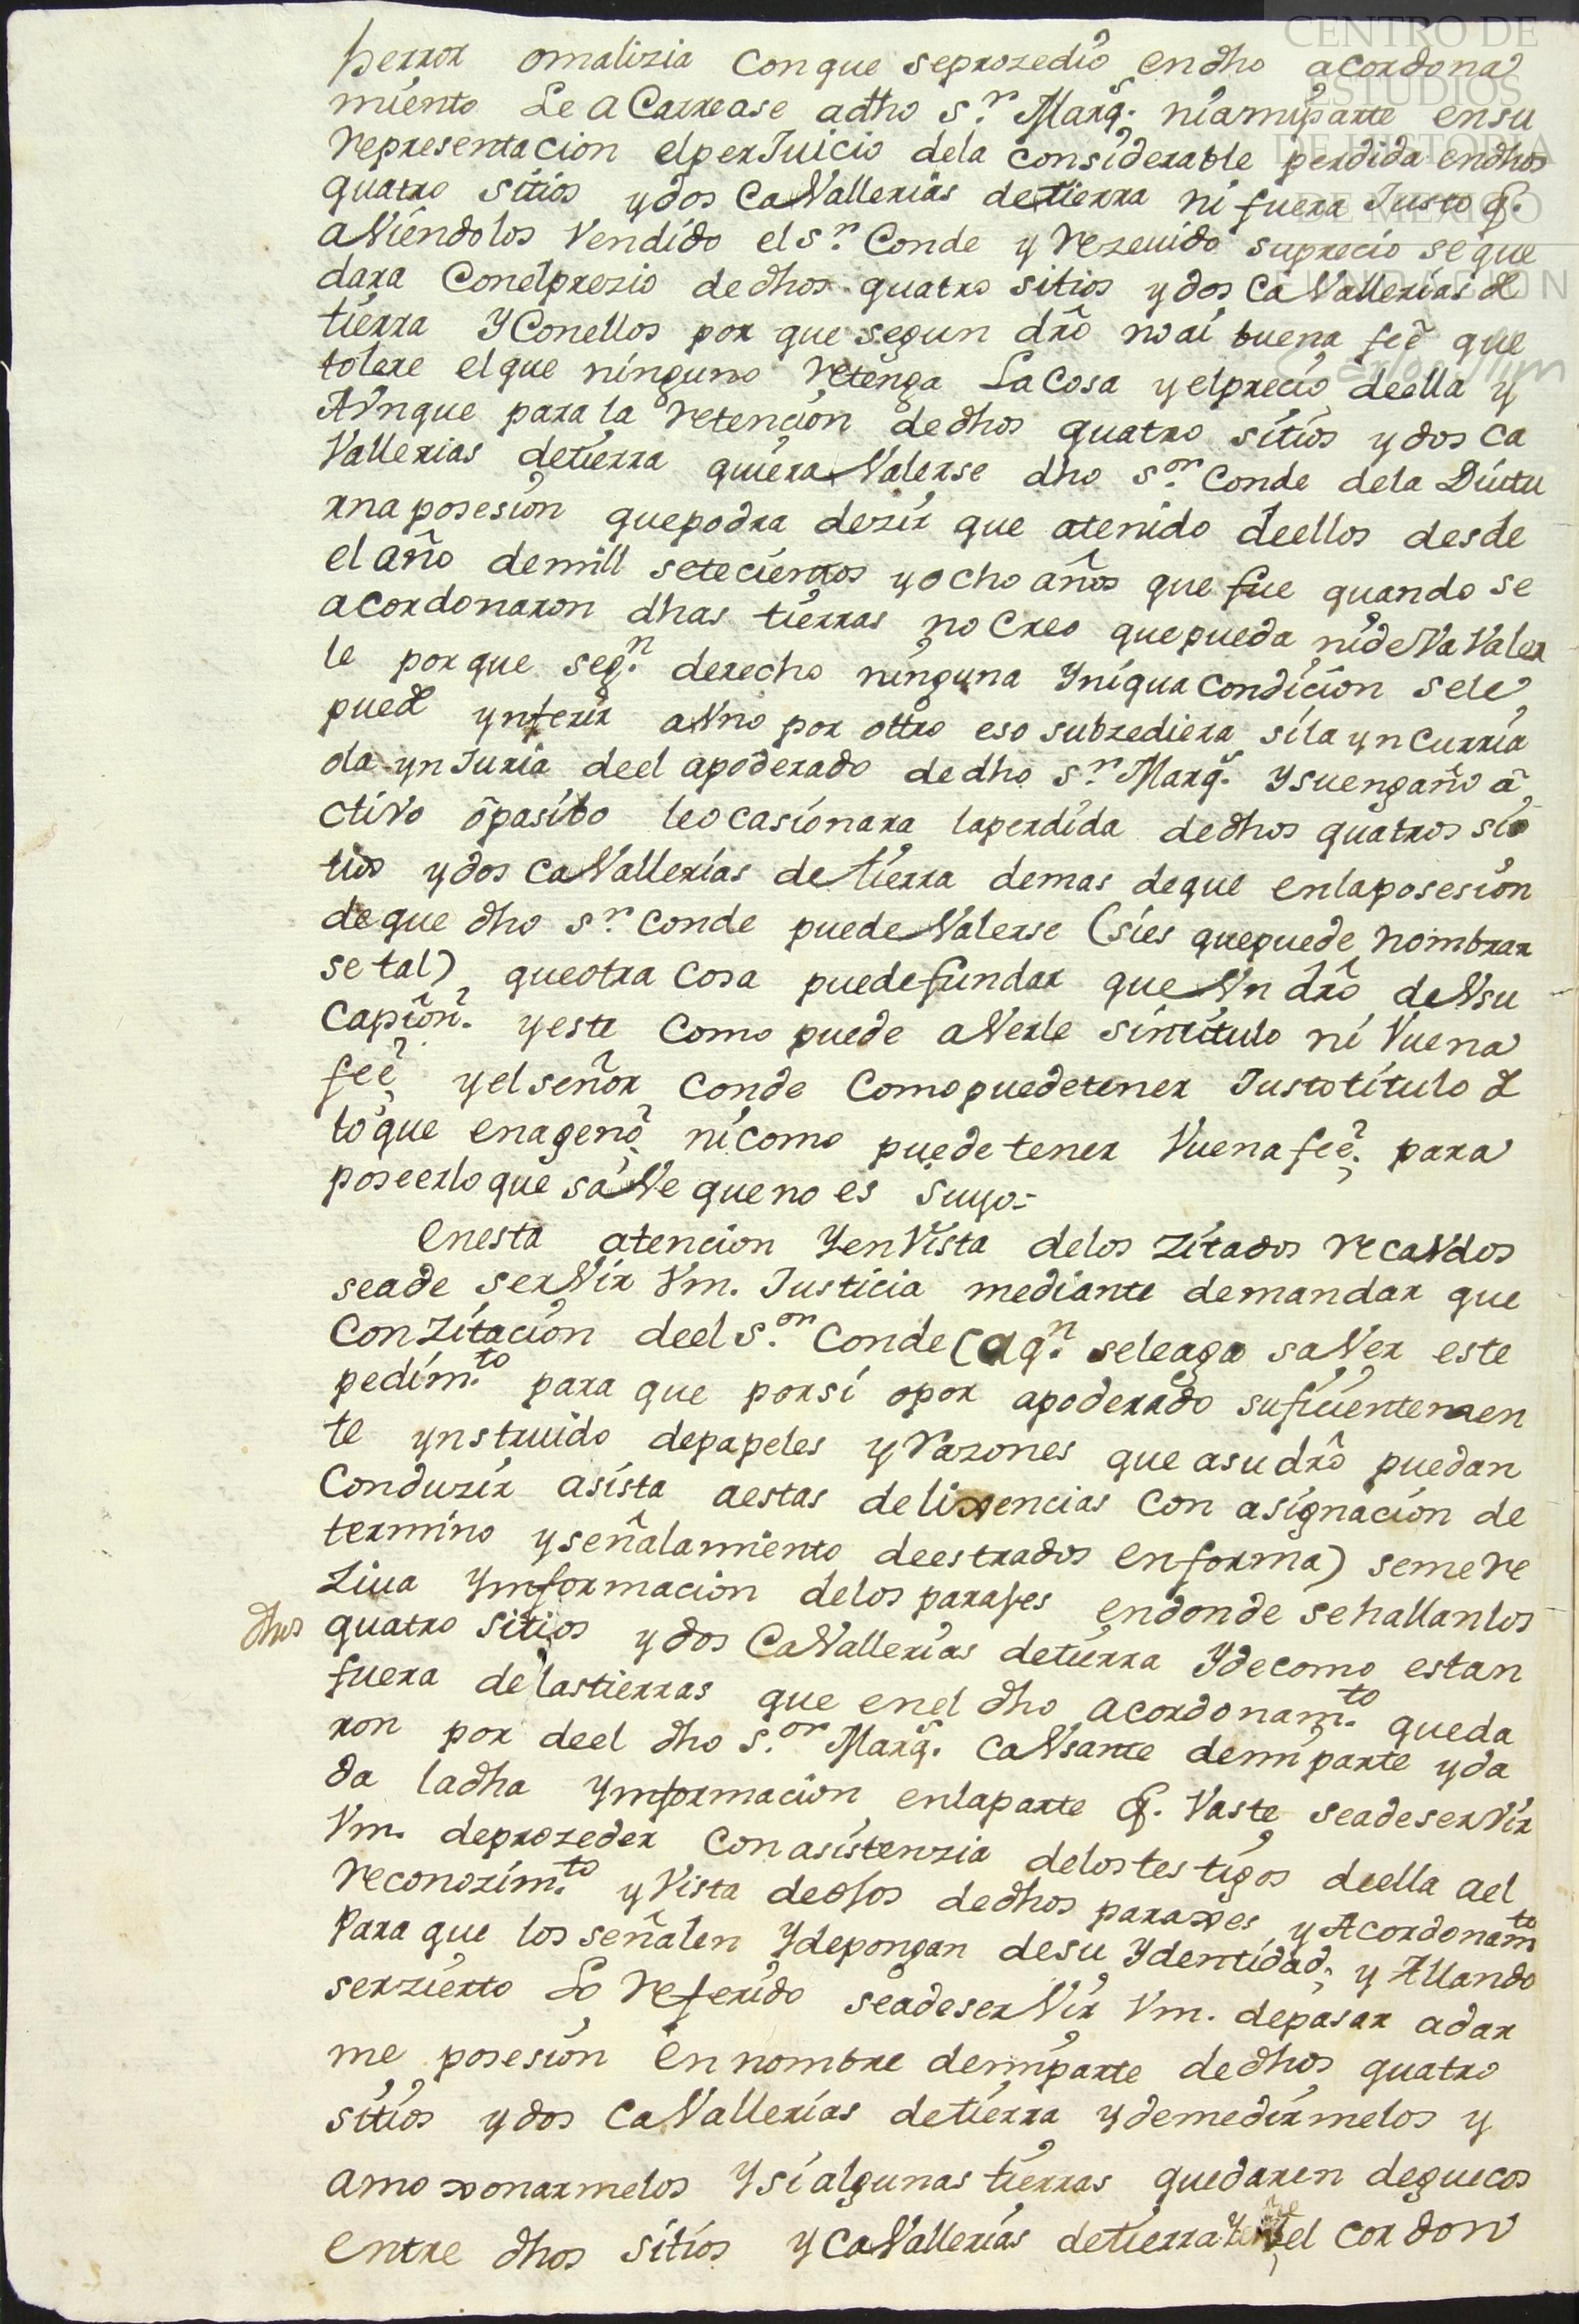 CENTRO DE
ESTUDIOS
DE HISTORIA
DE MEXICO
FUNDACION
herror omalizia Conque seprozedió endho acordona
miento Le aCarrease adho s.r Marq.s niamiparte ensu
representacion elperJuicio dela considerable perdida endhos
quatro sitios ydos CaVallerias detierra ni fuera Justo q.
aViendolos Vendido el s.r Conde y Rezeuido suprecio seque
dara Conelprezio dedhos quatro sitios ydos CaVallerias de
tierra YConellos por que segun dr̃o no ai buena feẽ que
tolere elque ninguno retenga La Cosa yelprecio deella y
AVnque para la retencion dedhos quatro sitios ydos Ca
Vallerias detierra quiera Valerse dho s.or Conde dela Diutu
rna posesion quepodra dezir que atenido deellos desde
el año demill setecientos yocho años que fue quando se
acordonaron dhas tierras no Creo quepueda nideVa Valer
le porque seg.n derecho ninguna Yniqua Condicion sele
puede ynferir aVno por ottro eso subzediera sila yncurria
da ynJuria deel apoderado dedho s.r Marq.s Ysuengaño ã
ctivo õpasibo leocasionara laperdida dedhos quatros si
tios ydos CaVallerias de tierra demas deque enlaposesion
deque dho s.r Conde puede Valerse (sies quepuede nombrar
se tal) queotra Cosa puedefundar que Vn dr̃o deVsu
Capiõn. yeste Como puede aVerle sintitulo ni Vuena
feẽ yelseñor Conde Comopuedetener Justotitulo de
loque enagenó nicomo puede tener Vuena feẽ. para
poseerloque saVe queno es Suyo=
Enesta atencion YenVista delos Zitados recaVdos
seade serVir Vm. Justicia mediante demandar que
ConZitacion deel s.or Conde (aq.n seleaga saVer este
pedim.to para que porsi opor apoderado sufizientemen
te ynstruido depapeles y Razones que asu dr̃o puedan
Conduzir asista aestas delixencias Con asignacion de
termino yseñalamiento deestrados enforma) semere
Ziua Ymformacion delos parajes endonde sehallanlos
dhos quatro sitios ydos CaVallerias detierra Ydecomo estan
fuera delastierras que enel dho acordonam.to queda
ron por deel dho s.or Marq.s CaVsante demiparte yda
da ladha Ymformacion enlaparte q. Vaste seadeserVir
Vm. deprozeder Conasistenzia delostestigos deella ael
reconozim.to y Vista deojos dedhos paraxes y Acordonamto
Para que los señalen Ydepongan desu Ydentidad. y Allando
serzierto Lo Referido seadeserVir Vm. depasar adar
me posesion En nombre demiparte dedhos quatro
sitios ydos CaVallerias detierra ydemedirmelos y
amoxonarmelos Ysialgunas tierras quedaren deguecos
Entre dhos sitios yCaVallerias detierra Yentre el cordon